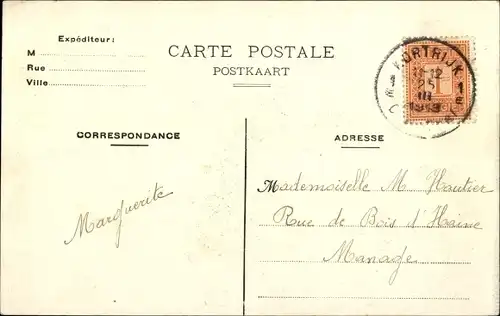 Expéditeur:
M
Rue
Ville
CARTE POSTALE
POSTKAART
KORTRIJK 1
11-12
25
III
1913
1
CORRESPONDANCE
ADRESSE
Marguerite
Mademoiselle M Hautier
Rue de Bois d'Haine
Manage